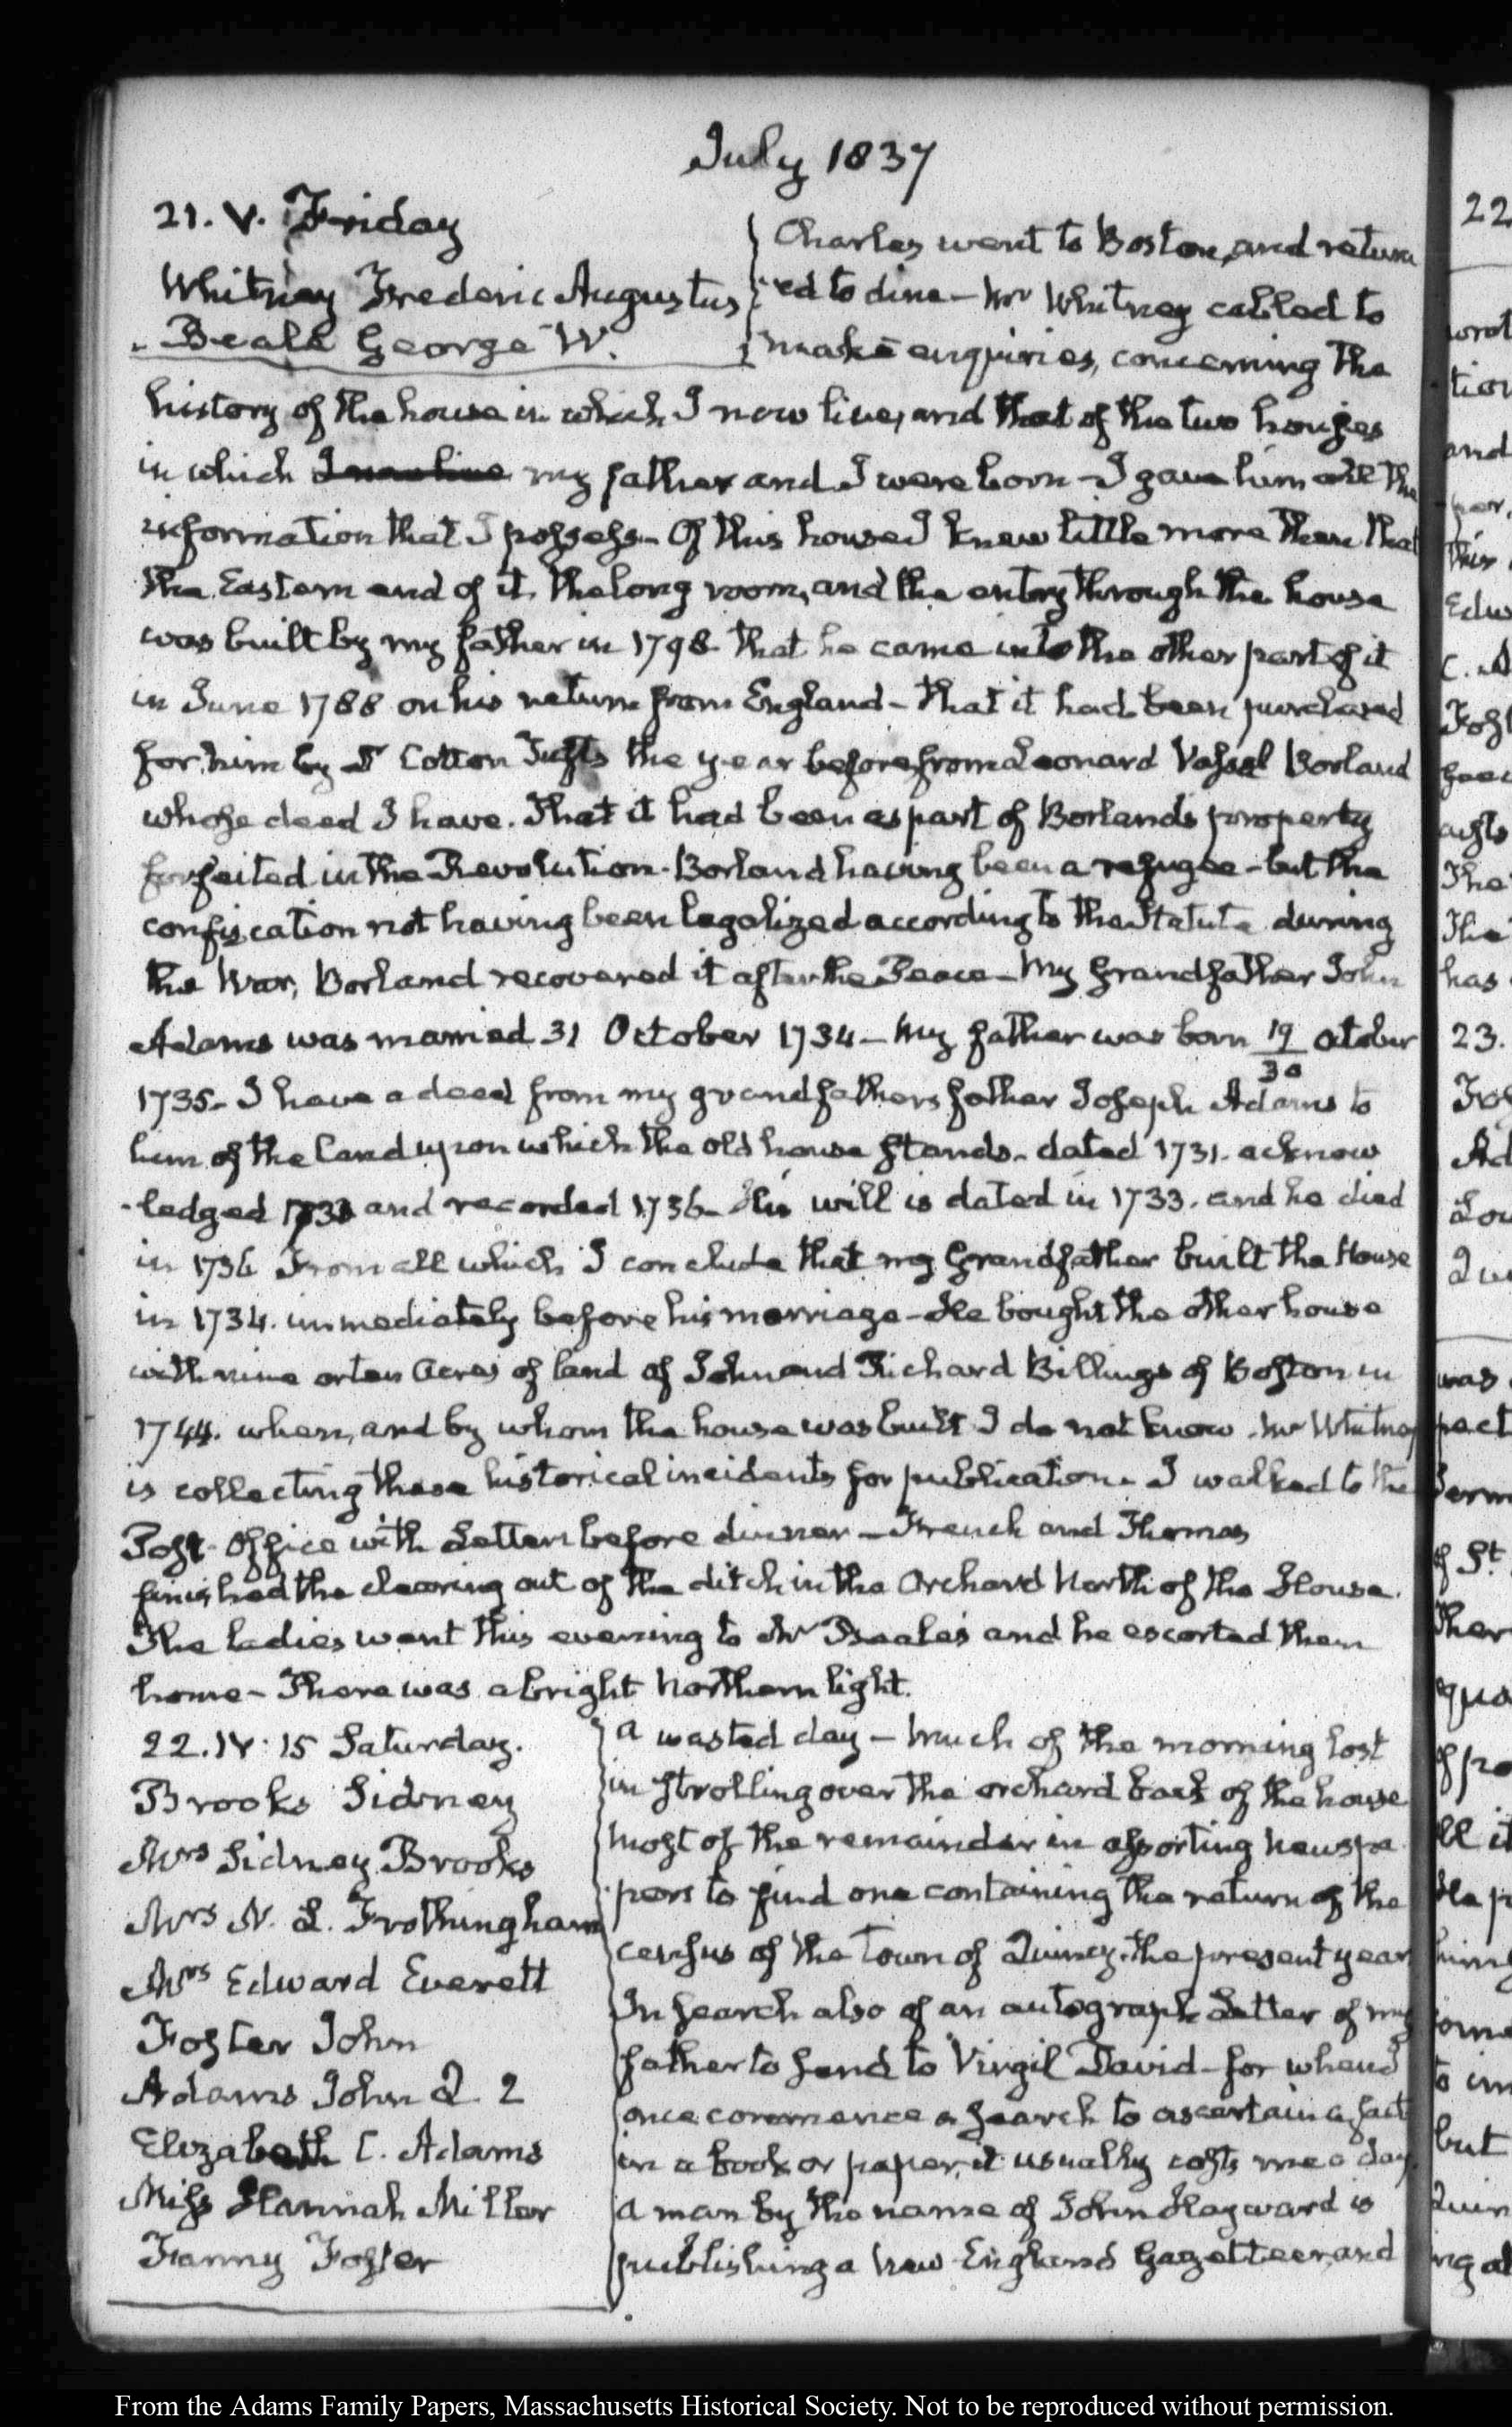 July 1837
21. V. Friday
Whitney Frederic Augustus
Beale George W.
Charles went to Boston, and return
ed to dine — Mr Whitney called to
make enquiries, concerning the
history of the house in which I now live, and that of the two houses
in which I now live my father and I were born — I gave him all the
information that I possess — Of this house I knew little more than that
the Eastern end of it, the long room, and the entry through the house
was built by my father in 1798 that he came into the other part of it
in June 1788 on his return from England — that it had been purchased
for him by Dr Cotton Tufts the year before from Leonard Vassal Borland
whose deed I have. That it had been as part of Borlands property
forfeited in the Revolution. Borland having been a refugee — but the
confiscation not having been legalized according to the Statute during
the War, Borland recovered it after the Peace — My Grandfather John
Adams was married 31 October 1734 — My father was born 19/30 October
1735 — I have a deed from my grandfathers father Joseph Adams to
him of the land upon which the old house stands — dated 1731. acknow
ledged 1733 and recorded 1736 — His will is dated in 1733. and he died
in 1736 From all which I conclude that my Grandfather built the House
in 1734. immediately before his marriage — He bought the other house
with nine or ten Acres of land of John and Richard Billings of Boston in
1744. when, and by whom the house was built I do not know. Mr Whitney
is collecting these historical incidents for publication. I walked to the
Post-Office with Letters before dinner — French and Thomas
finished the clearing out of the ditch in the Orchard North of the House.
The ladies went this evening to Mr Beale's and he escorted them
home — There was a bright Northern light.
22. IV:15 Saturday.
Brooks Sidney
Mrs Sidney Brooks
Mrs N. L. Frothingham
Mrs Edward Everett
Foster John
Adams John Q. 2
Elizabeth C. Adams
Miss Hannah Miller
Fanny Foster
A wasted day — Much of the morning lost
in strolling over the orchard back of the house
Most of the remainder in assorting Newspa
pers to find one containing the return of the
census of the Town of Quincy the present year
In search also of an autograph Letter of my
father to send to Virgil David — for when I
once commence a search to ascertain a fact
in a book or paper, it usually costs me a day
A man by the name of John Hayward is
publishing a New England Gazetteer, and
22
and
23.
Ad
was
but
From the Adams Family Papers, Massachusetts Historical Society. Not to be reproduced without permission.